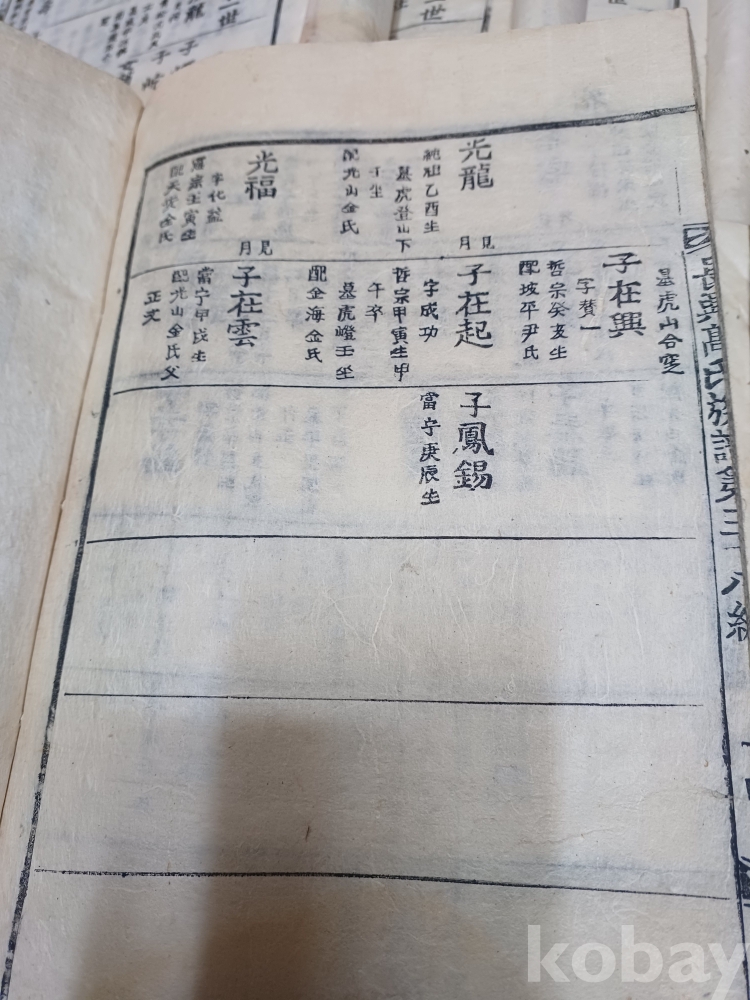 長興高氏族譜
光龍
見
月
純祖乙酉生
墓虎登山下
子坐
配光山金氏
光福
見
月
字化益
憲宗壬寅生
配天安全氏
墓虎山合窆
子在興
字贊一
哲宗癸亥生
配坡平尹氏
子在起
字成功
哲宗甲寅生甲
午卒
墓虎嶝壬坐
配金海金氏
子在雲
當宁甲戌生
配光山金氏父
正文
子鳳錫
當宁庚辰生
kobay